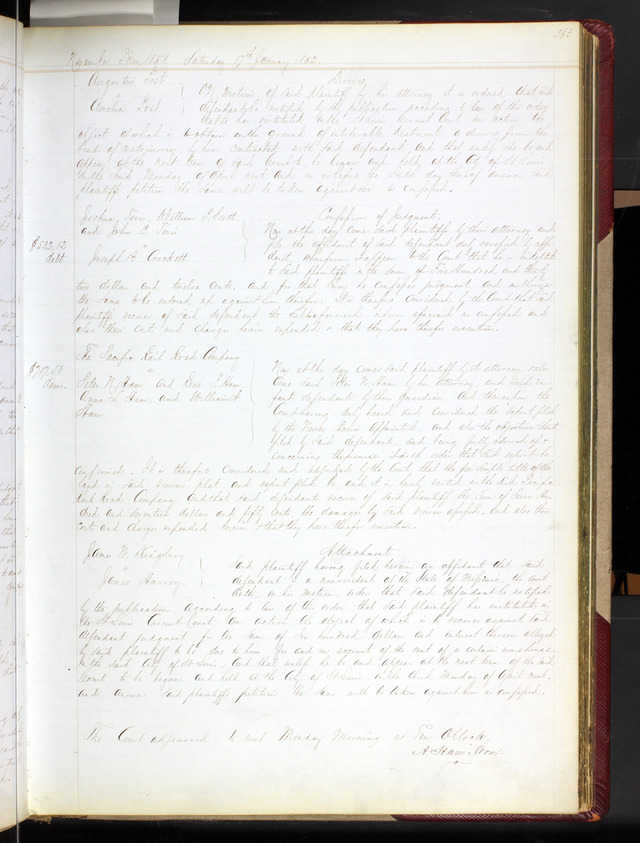 November Term 1851 Saturday 17th January 1852.
363
Augustus Post
Divorce
Amelia Post
On motion of said plaintiff by his attorney it is ordered that said
defendant be notified by the publication according to law of this order
that he has instituted in the St Louis Circuit Court an action the
object of which is to obtain on the ground of intolerable treatment a divorce from the
bonds of matrimony by him contracted with said defendant, and that unless she be and
appear at the next term of said Court to be begun and held at the City of St Louis
on the third Monday of April next and on or before the sixth day thereof answer said
plaintiffs petition the same will be taken against her as confessed.
William T. Scott
Confession of Judgment.
and John
$532.12
debt
vs
Joseph B. Crockett
Now at this day come said plaintiffs by their attorney and
file the affidavit of said defendant duly verified by affi
davit whereupon it appears to the Court that he is indebted
to said plaintiffs in the sum of Five Hundred and thirty
two dollars and twelve cents, and for that sum he confesses judgment and authorizes
the same to be entered up against him therefor. It is therefore considered by the Court that said
plaintiffs recover of said defendant the debt aforesaid as confessed and
also their costs and charges herein expended & that they have therefor execution.
The Pacific Rail Road Company
dams.
vs
Peter N. Ham and
Ham,
Anna L. Ham and William
Ham.
Now at this day comes said plaintiff by its attorney and also
come said Peter N. Ham by his attorney, and said in
fant defendants by their Guardian, and thereupon the
Court having duly heard and considered the report filed
by the viewers herein appointed, and also the objections
filed by said defendants, and being fully advised of &
concerning the premises, doth order that said report be
confirmed. It is therefore considered and adjudged by the Court, that the fee simple title of the
land in said viewers plat and report filed be and it is hereby vested in the said Pacific
Rail Road Company and that said defendants recover of said plaintiff the sum of Seven Hun
dred and seventeen dollars and fifty cents the damages by said viewers assessed, and also their
costs and charges expended herein & that they have therefor execution.
James W. Kingsbury
Attachment.
vs
James Harvey
Said plaintiff having filed herein an affidavit that said
defendant is a nonresident of the State of Missouri, the Court
doth, on his motion, order that said defendant be notified
by the publication according to law of this order that said plaintiff has instituted in
the St Louis Circuit Court an action the object of which is to recover against said
defendant judgment for the sum of Six hundred dollars and interest thereon alleged
by said plaintiff to be due to him for and on account of the rent of a certain warehouse
in the said City of St Louis, and that unless he be and appear at the next term of the said
Court to be begun and held at the City of St Louis on the third Monday of April next,
and answer said plaintiffs petition the same will be taken against him as confessed.
The Court adjourned to meet Monday Morning at Ten O'Clock.
A Hamilton.